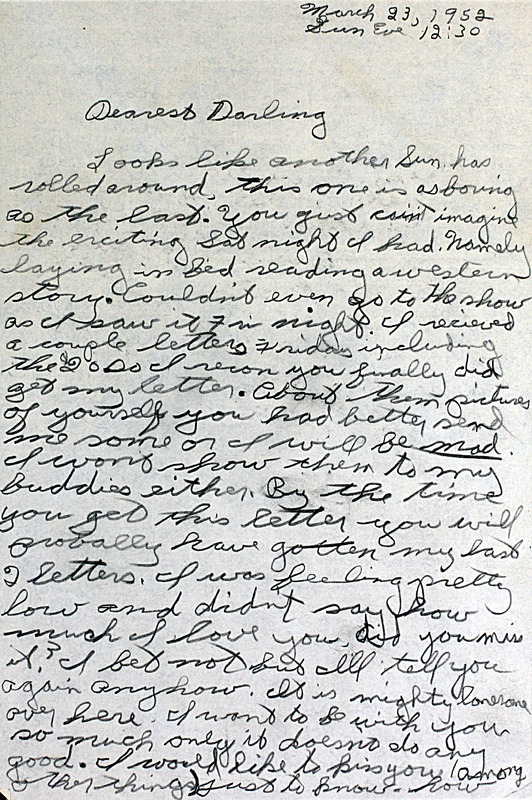 March 23, 1952
Sun Eve 12:30
Dearest Darling
Looks like another Sun. has
rolled around, this one is as boring
as the last. You gust can't imagine
the exciting Sat night I had. Namely
laying in bed reading a western
story. Couldn't even go to the show
as I saw it Fri night. I recieved
a couple letters Friday including
the so I recon you finally did
get my letter. About them pictures
of yourself you had better send
me some or I will be mad.
I won't show them to my
buddies either. By the time
you get this letter you will
probally have gotten my last
2 letters. I was feeling pretty
low and didn't say how
much I love you, did you miss
it? I bet not but I'll tell you
again anyhow. It is mighty lonesome
over here. I want to be with you
so much only it doesn't do any
good. I would like to kiss you (among
other things) just to know how